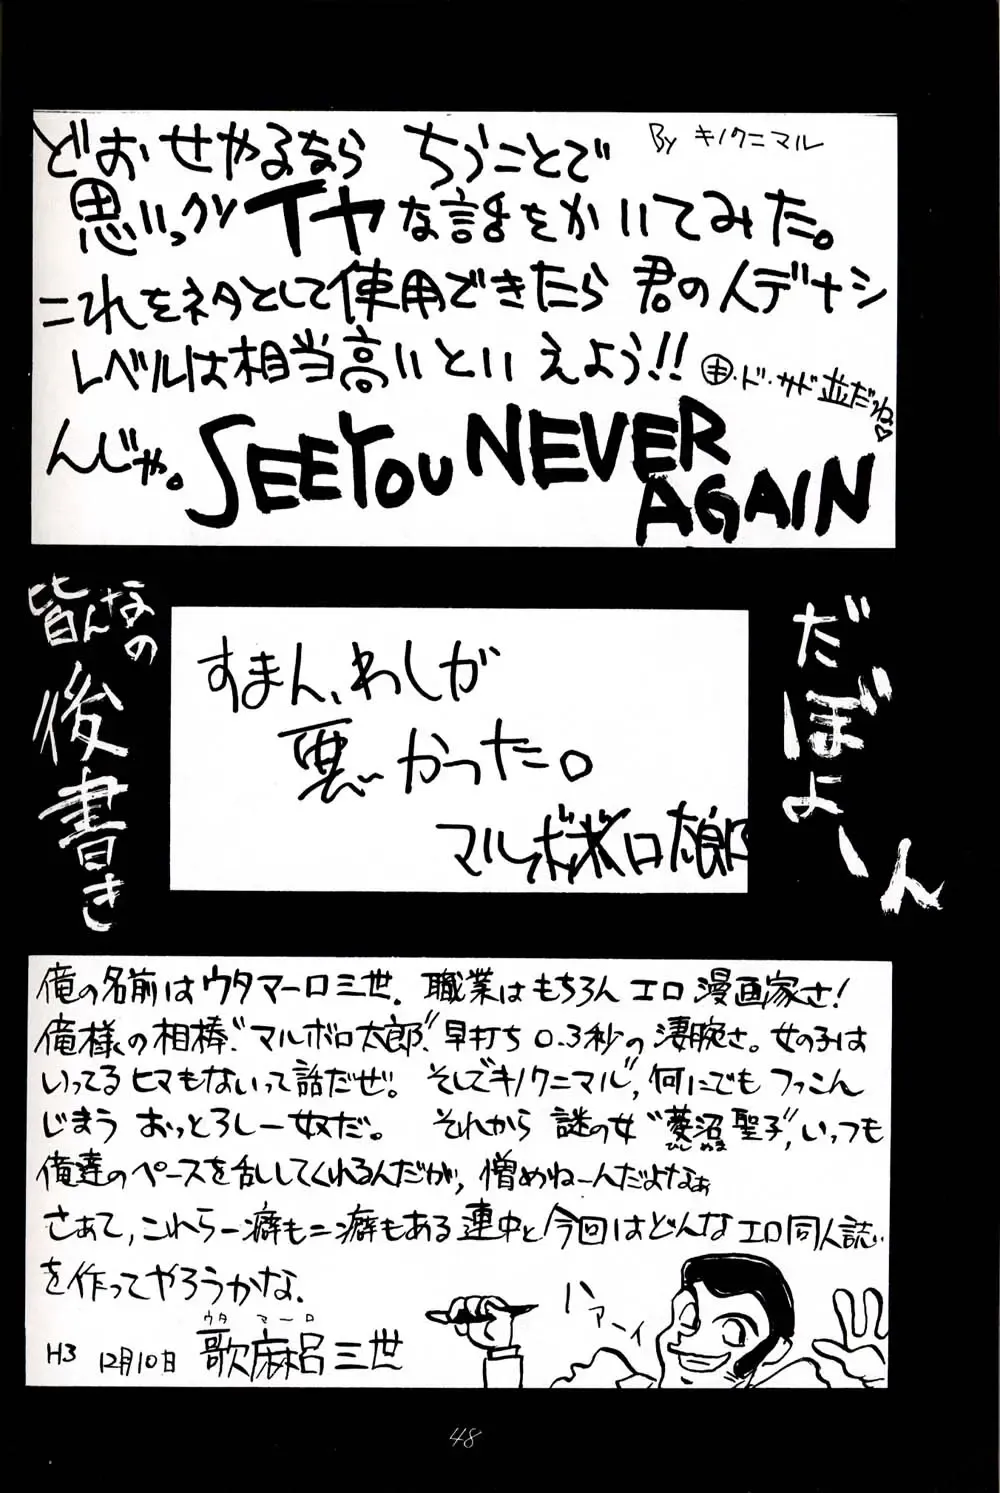 どおせやるなら ちうことで
By キノクニマル
思いっクソイヤな話をかいてみた。
これをネタとして使用できたら 君の人デナシ
レベルは相当高いといえよう!!
・ド・サド並だね♡
んじゃ。SEE YOU NEVER
AGAIN
皆んなの
後書き
だぼよーん
すまん、わしが
悪かった。
マルボロ太郎
俺の名前はウタマーロ三世. 職業はもちろん エロ漫画家さ!
俺様の相棒“マルボロ太郎”早打ち0.3秒の凄腕さ。女の子は
いってるヒマもないって話だぜ。 そして“キノクニマル”, 何にでもフっこん
じまう おっとろしー奴だ。 それから 謎の女“菱沼聖子”, いっつも
ひしぬま
俺達のペースを乱してくれるんだが, 憎めねーんだよなぁ
さぁて, これら一癖も二癖もある連中と今回はどんなエロ同人誌
を作ってやろうかな.
ハァーイ
ウタマーロ
H3 12月10日 歌麻呂三世
48